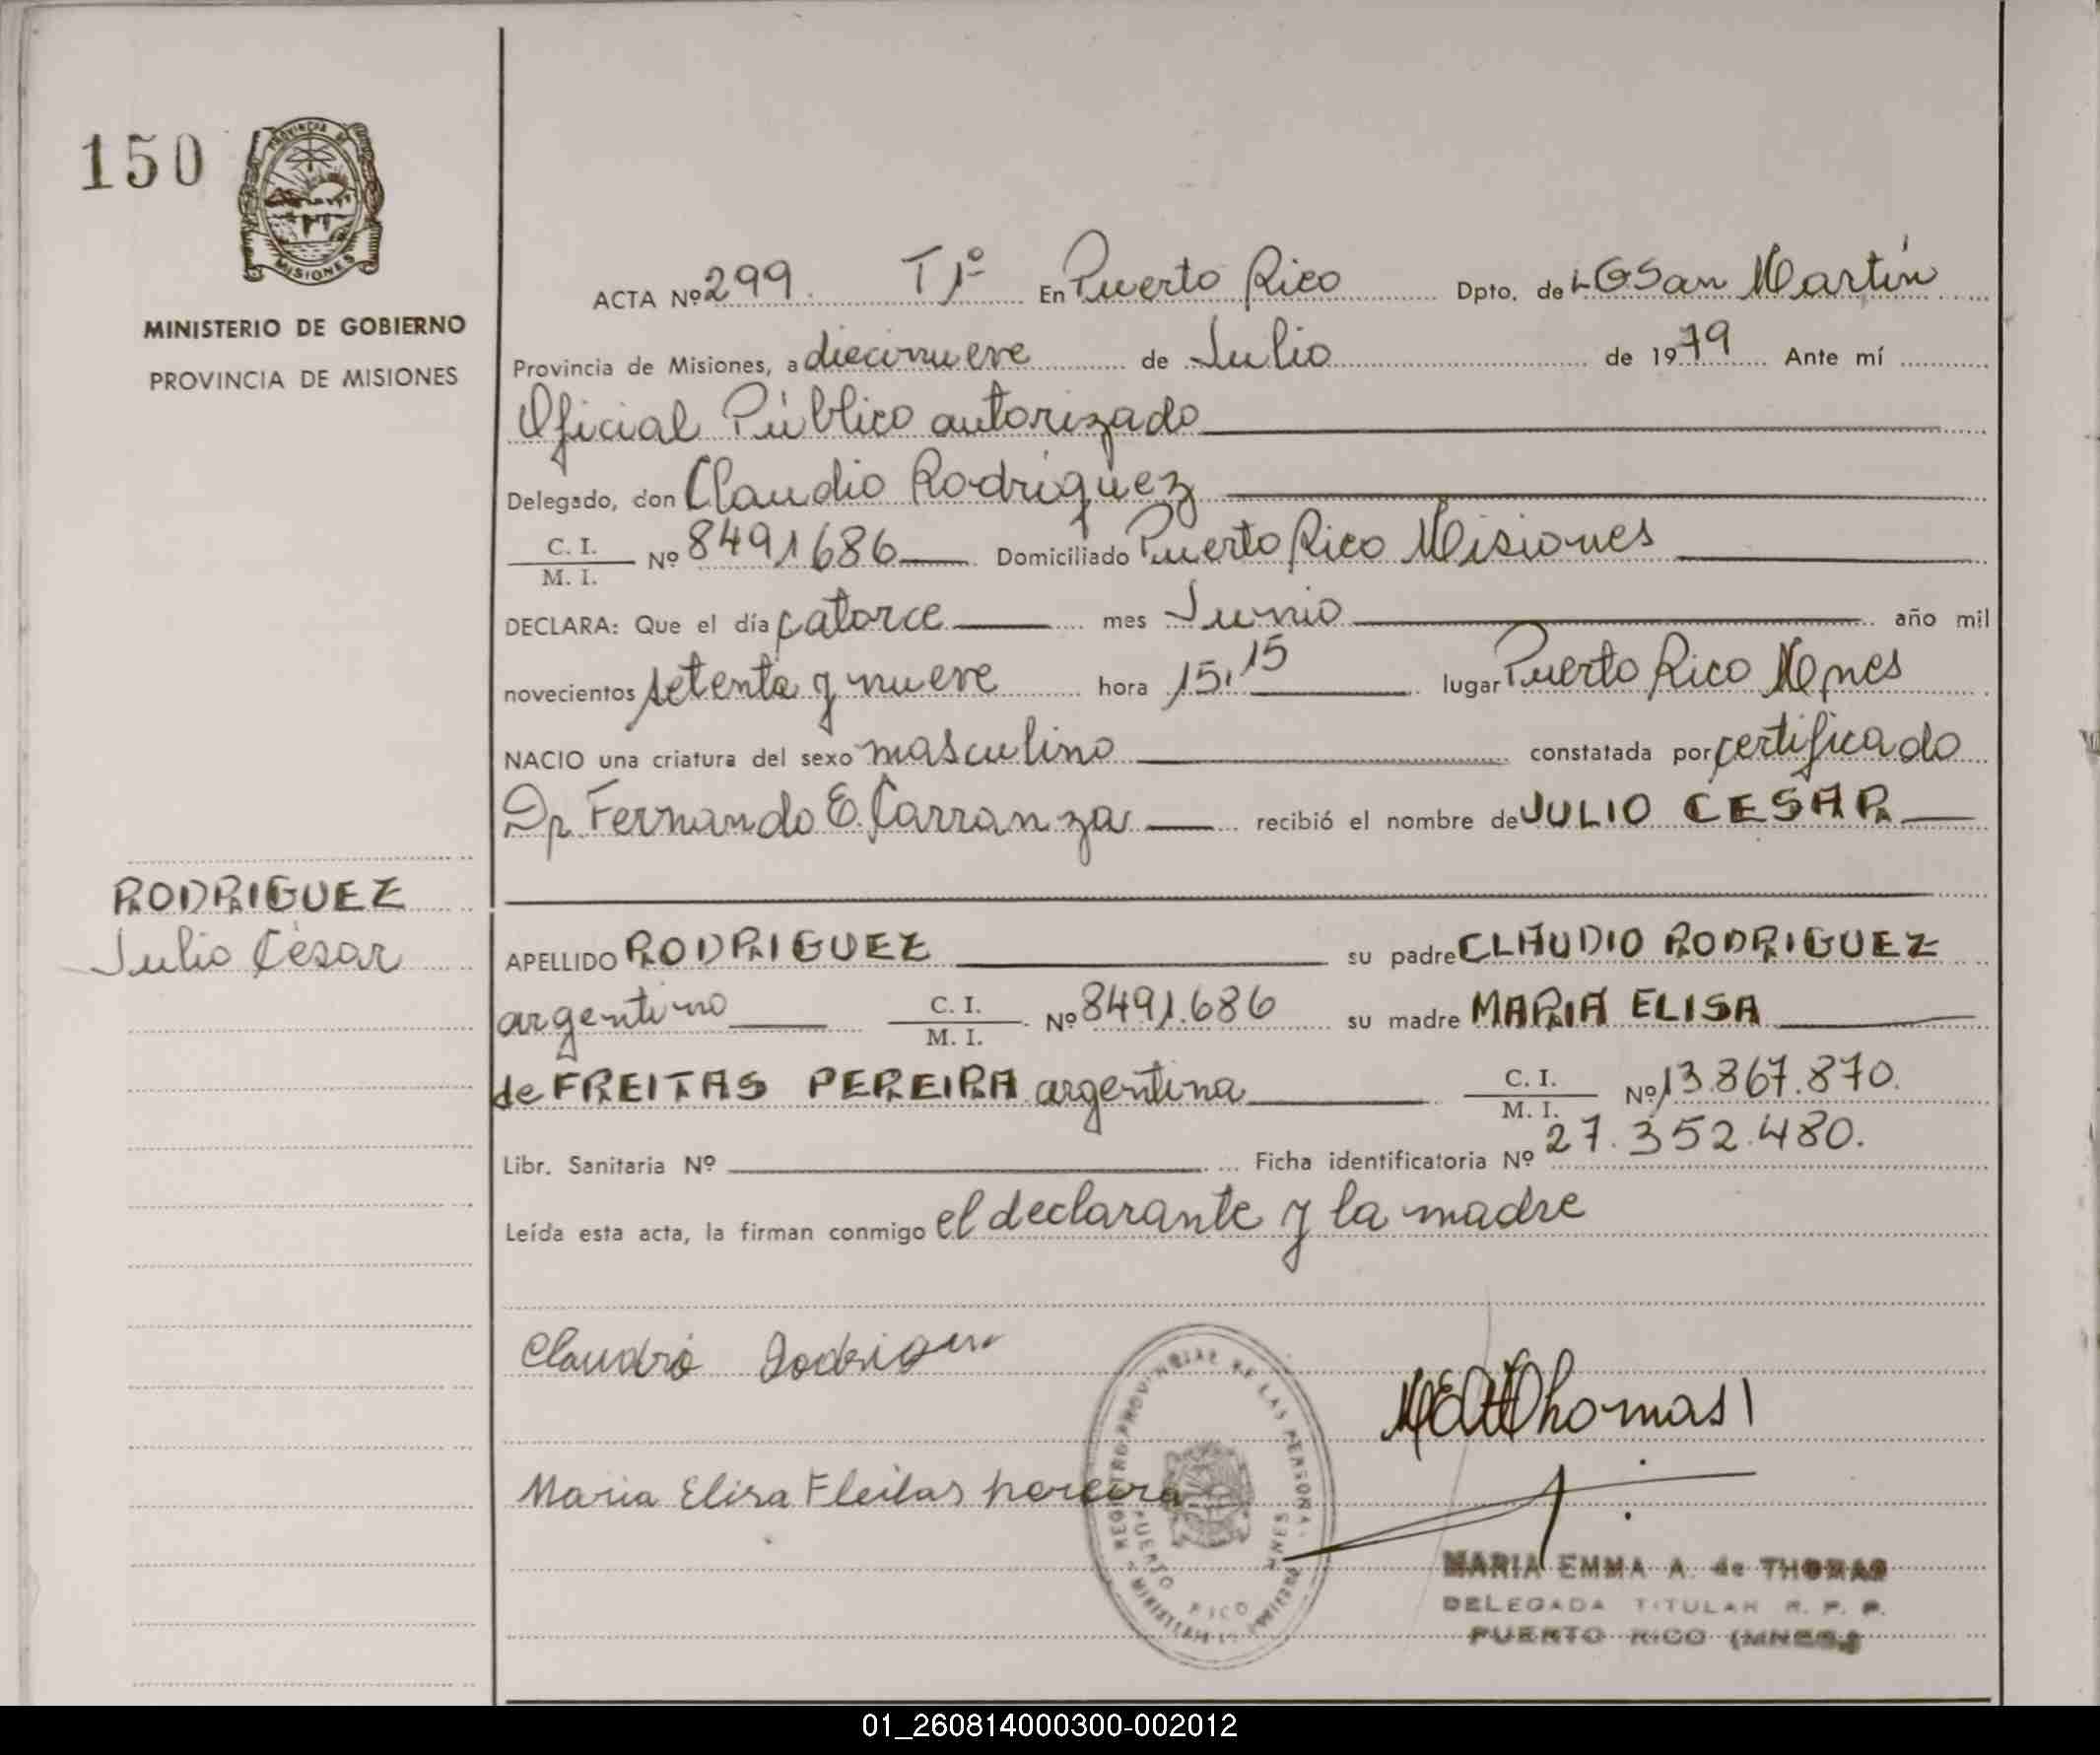 150
PROVINCIA DE
MISIONES
MINISTERIO DE GOBIERNO
PROVINCIA DE MISIONES
RODRIGUEZ
Julio César
ACTA Nº 299. T1º En Puerto Rico Dpto. de LGSan Martín
Provincia de Misiones, a diecinueve de Julio de 1979 Ante mí
Oficial Público autorizado
Delegado, don Claudio Rodríguez
C. I.
M. I. Nº 8491686 Domiciliado Puerto Rico Misiones
DECLARA: Que el día catorce mes Junio año mil
novecientos setenta y nueve hora 15,15 lugar Puerto Rico Mnes
NACIO una criatura del sexo masculino constatada por certificado
Dr Fernando E. Carranza recibió el nombre de JULIO CESAR
APELLIDO RODRIGUEZ su padre CLAUDIO RODRIGUEZ
argentino C. I.
M. I. Nº 8491.686 su madre MARIA ELISA
de FREITAS PEREIRA argentina C. I.
M. I. Nº 13.867.870.
Libr. Sanitaria Nº Ficha identificatoria Nº 27.352.480.
Leída esta acta, la firman conmigo el declarante y la madre
Claudio Rodriguez
Maria Elisa Fleitas pereira
REGISTRO PROVINCIAL DE LAS PERSONAS
PUERTO RICO MNES
Thomas
MARIA EMMA A. de THOMAS
DELEGADA TITULAR R. P. P.
PUERTO RICO (MNES.)
01_260814000300-002012